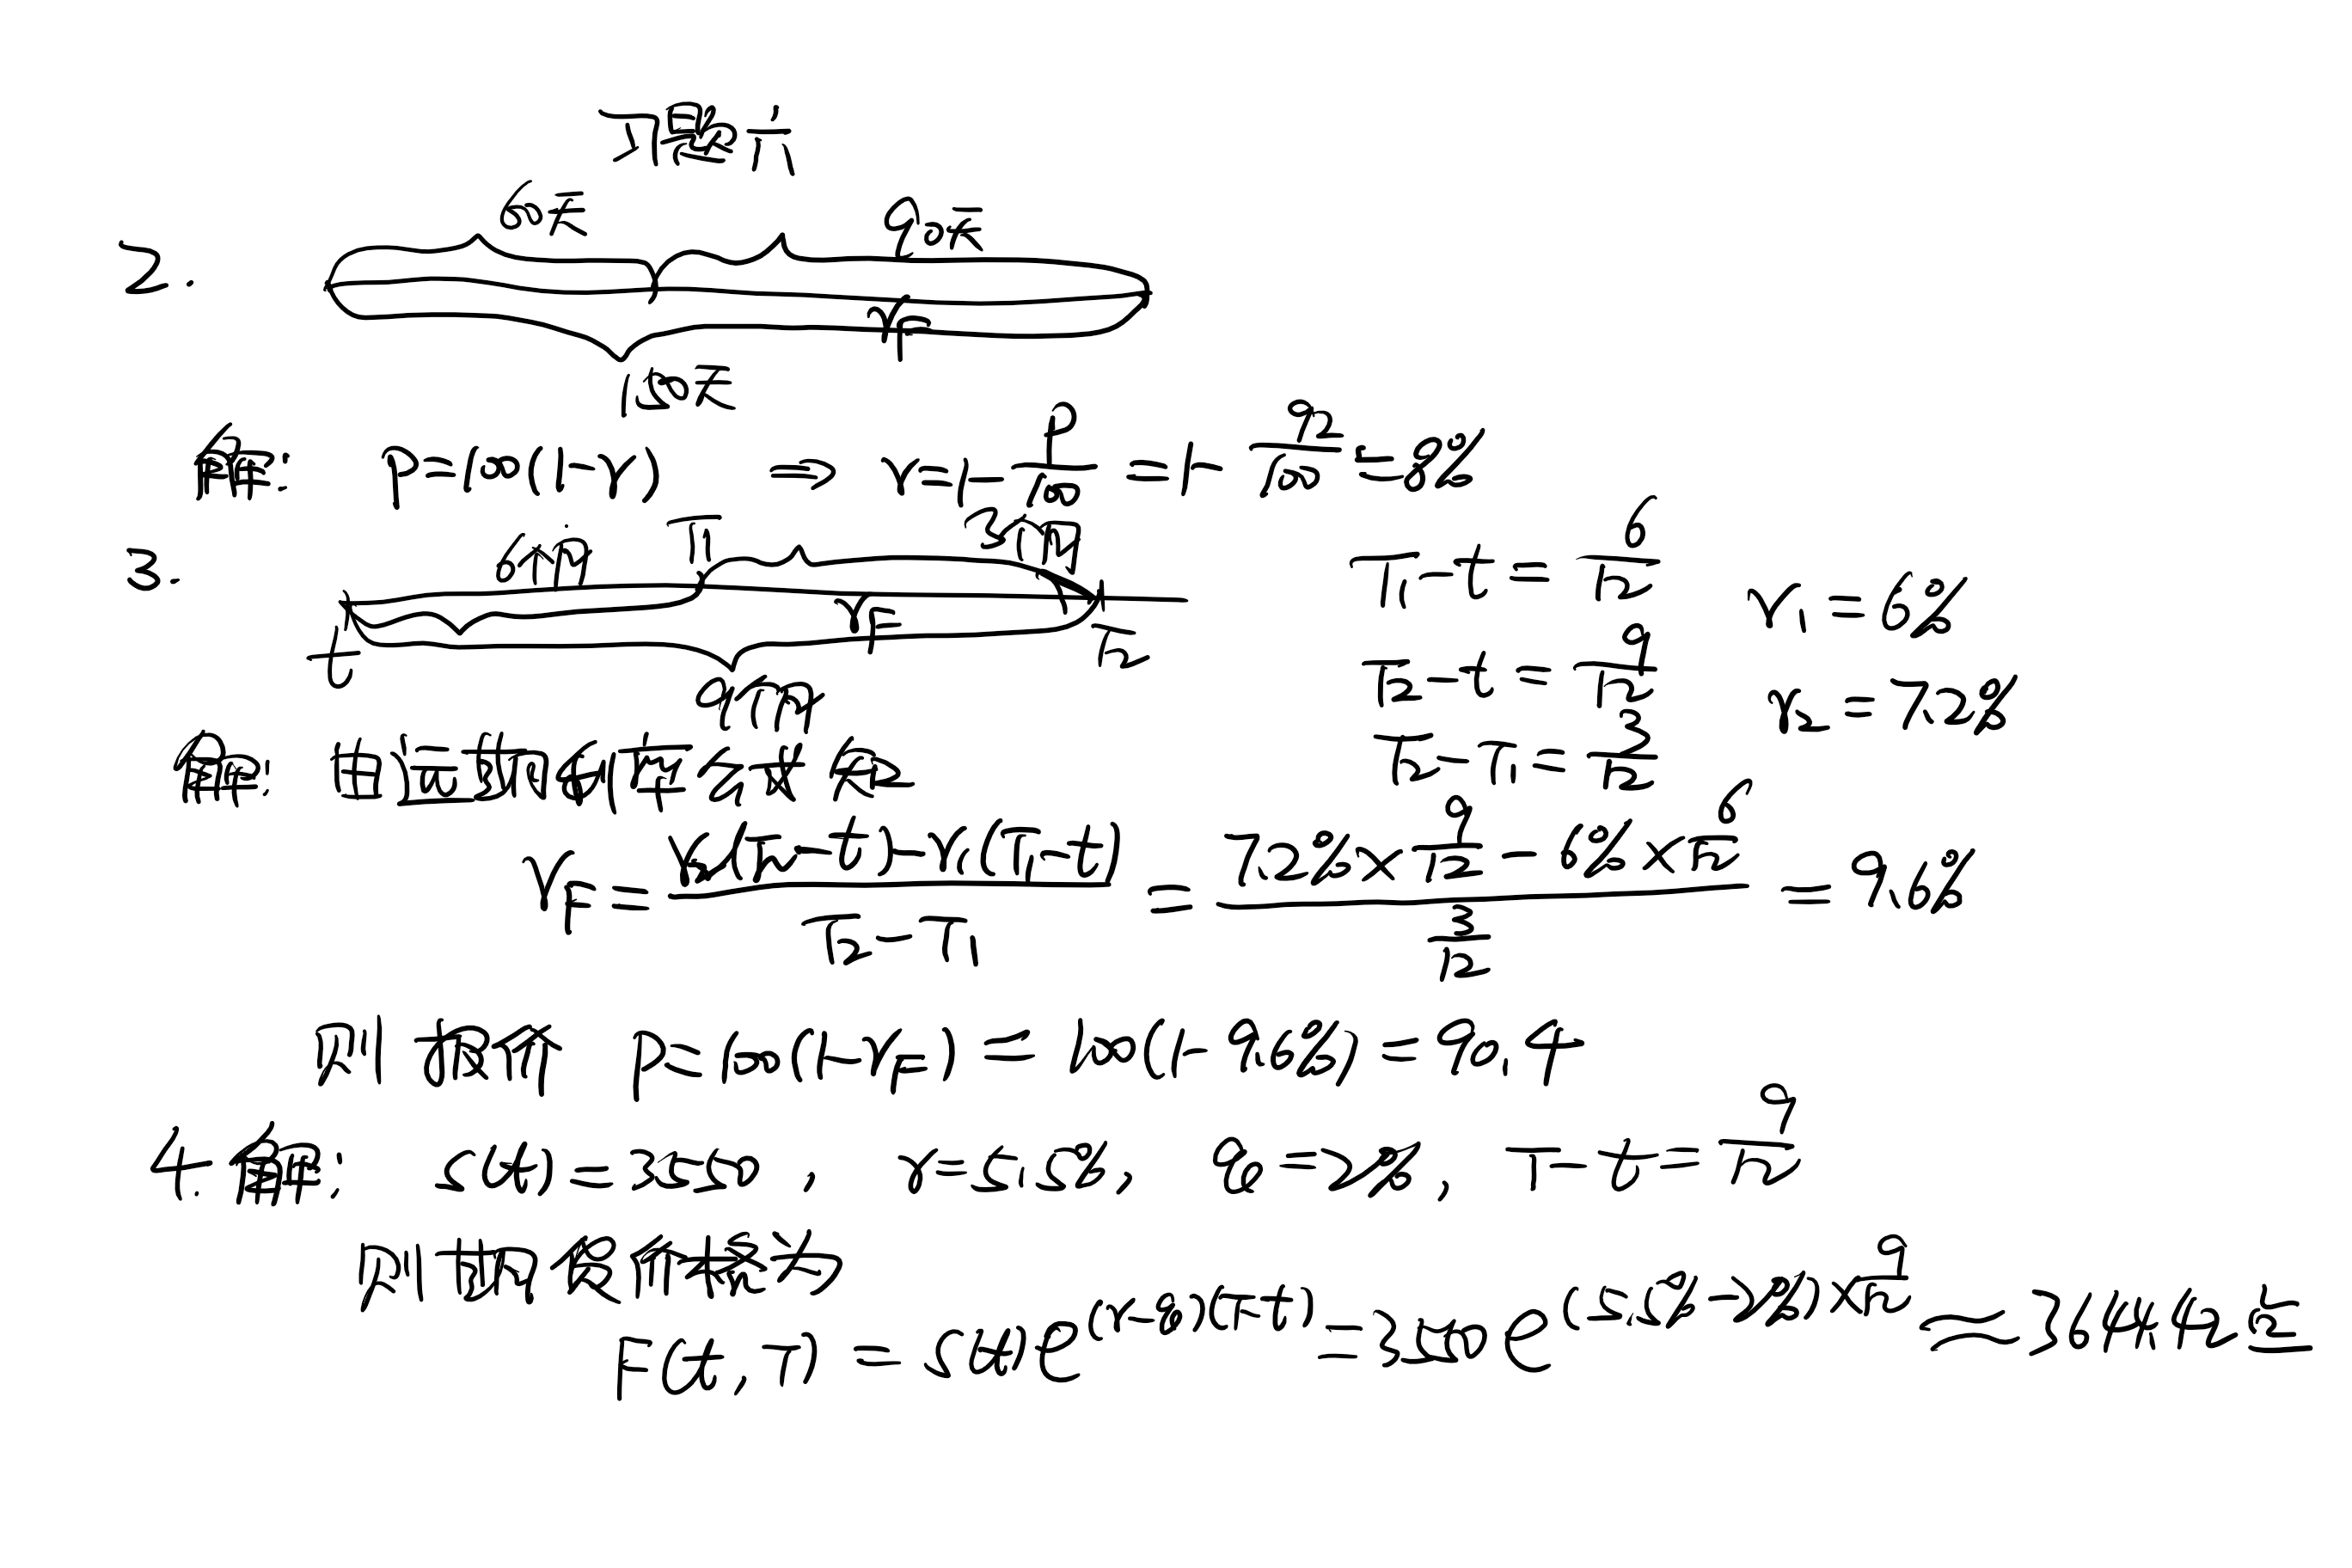 习题六
60天 90天
2.
r_F
150天
解: P=100(1-r) ⇒ r=1-\frac{P}{100}=1-\frac{92}{100}=8%
3. 6个月 T_1 3个月 T_1-t=\frac{6}{12} r_1=6%
t r_F T_2
9个月 T_2-t=\frac{9}{12} r_2=7.2%
解: 由远期利率平公式知 T_2-T_1=\frac{3}{12}
r_F=\frac{r_2(T_2-t)-r_1(T_1-t)}{T_2-T_1}=\frac{7.2%×\frac{9}{12}-6%×\frac{6}{12}}{\frac{3}{12}}=9.6%
则报价 P=100(1-r_F)=100(1-9.6%)=90.4
4. 解: S(t)=3550, r=5.5%, q=2%, T-t=\frac{9}{12}
则期货价格为
F(t,T)=S(t)e^{(r-q)(T-t)}=3550e^{(5.5%-2%)×\frac{9}{12}}≈3644.42元